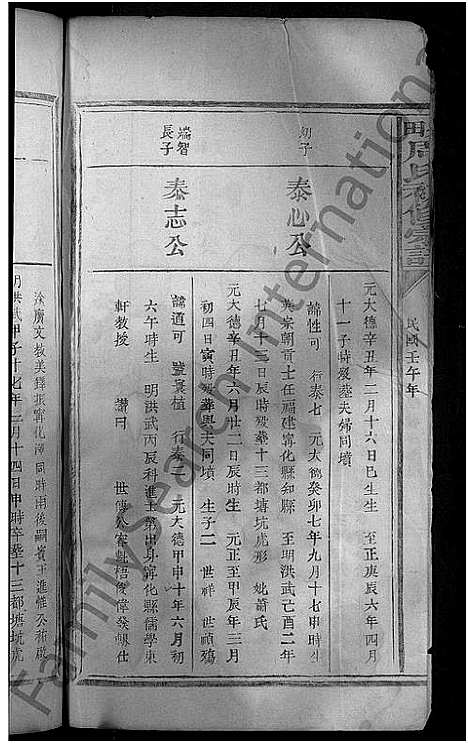 民國壬午年
元大德辛丑年二月十六日巳生生 至正庚辰六年四月
十一子時歿葬夫婦同墳
幼子
泰心公
諱性可 行泰七 元大德癸卯七年九月十七申時生
英宗朝貢士任福建寧化縣知縣 至明洪武己酉二年
七月十三日辰時歿葬十三都塘坑虎形 妣蕭氏
元大德辛丑年六月廿二日辰時生 元正至甲辰年三月
初四日寅時歿葬與夫同墳 生子二 世祥 世禎殤
端智
長子
泰志公
諱道可 號 植 行泰二 元大德甲申十年六月初
六午時生 明洪武丙辰科進士第出身寧化縣儒學東
軒教授 讚曰 世傳公 魁梧俊偉發軔仕
途廣文教美鐸振寧化澤同時雨後嗣賓王進惟公裕啟
明洪武甲子十七年二月十四日申時卒葬十三都塘坑虎
FamilySearch International